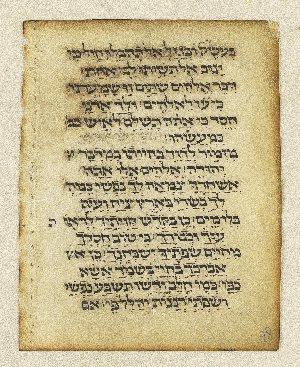 בעשק ובגזל אל תהבלו חיל כי
ינוב אל תשיתו לב אחת
דבר אלהים שתים זו שמעתי
כי עז לאלהים ולך אדני
חסד כי אתה תשלם לאיש
כמעשהו
מזמור לדוד בהיותו במדבר
יהודה אלהים אלי אתה
אשחרך צמאה לך נפשי כמה
לך בשרי בארץ ציה ועיף
בלי מים כן בקדש חזיתך לראו ת
עזך וכבודך כי טוב חסדך
מחיים שפתי ישבחונך כן
אברכך בחיי בשמך אשא
כפי כמו חלב ודשן תשבע נפשי
ושפתי רננות יהלל פי אם